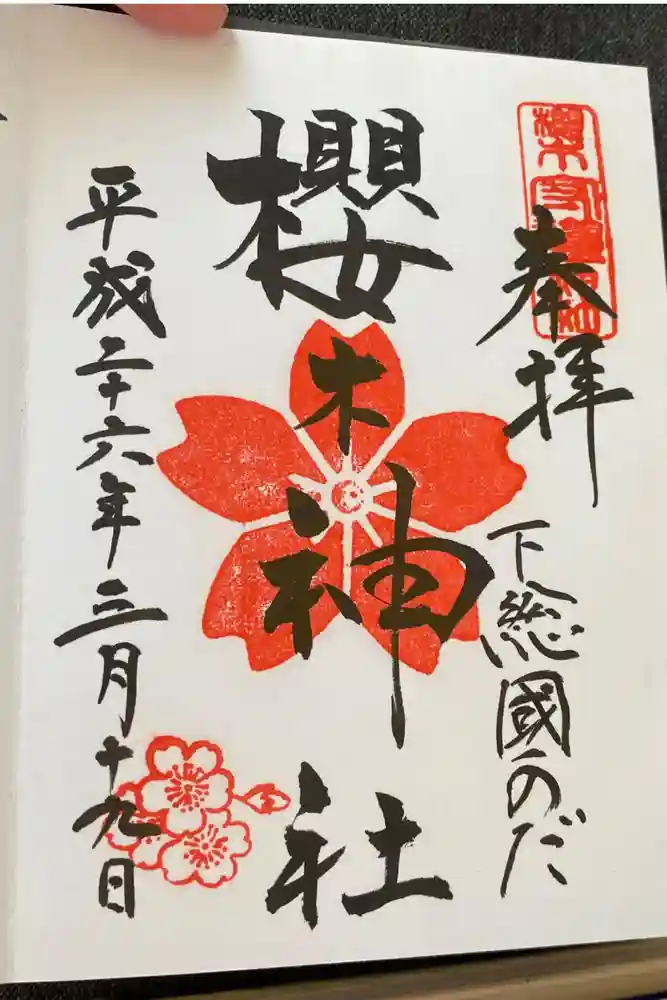 奉拝
下総國のだ
櫻木神社
平成二十六年三月十九日